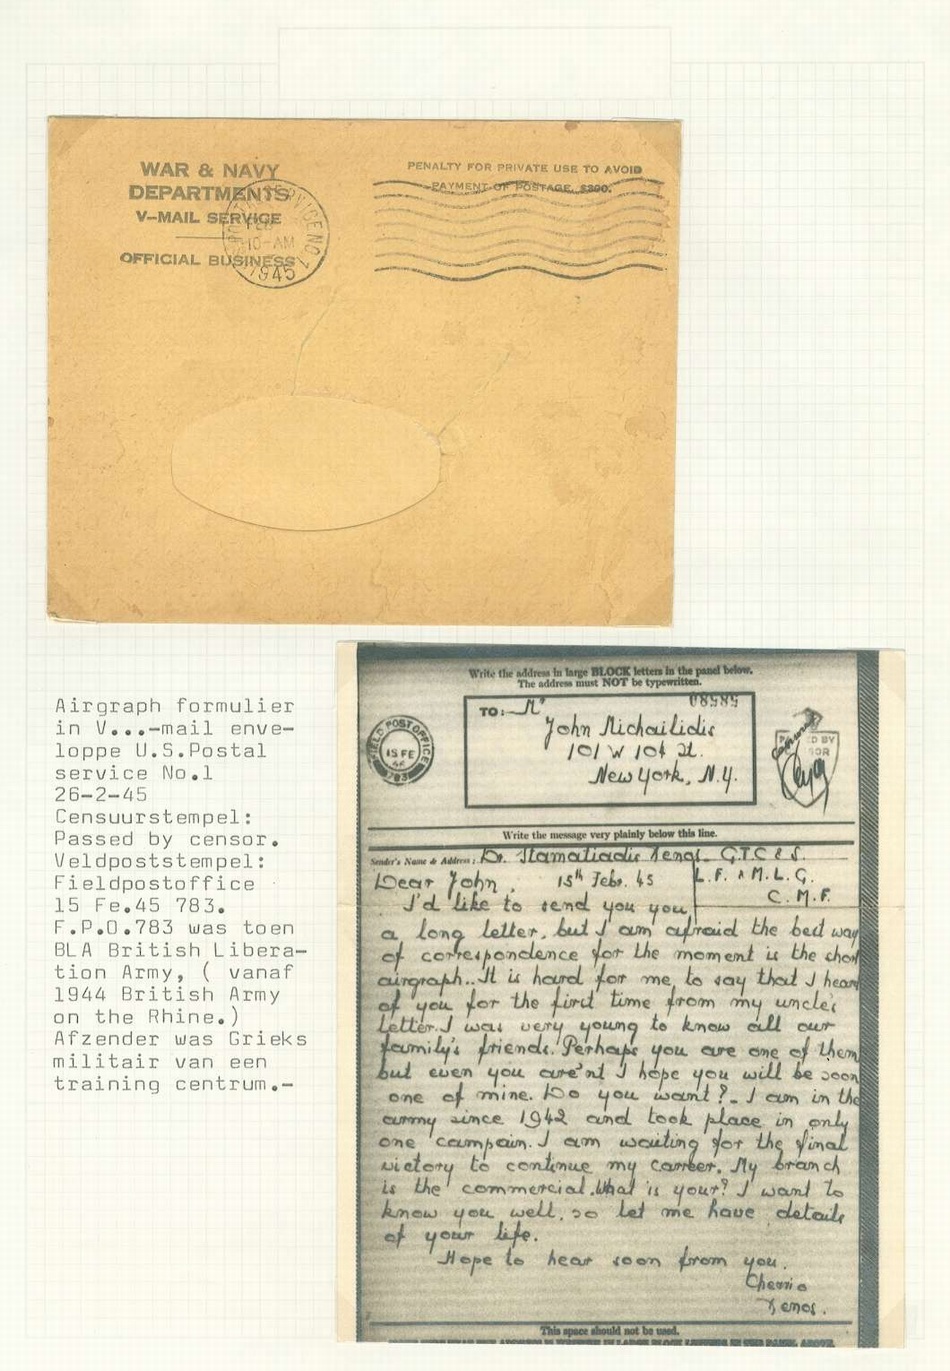 WAR & NAVY
DEPARTMENTS
V-MAIL SERVICE
OFFICIAL BUSINESS
PENALTY FOR PRIVATE USE TO AVOID
PAYMENT OF POSTAGE, $300.
SERVICE NO. 1
FEB
10-AM
1945
Airgraph formulier
in V...-mail enve-
loppe U.S.Postal
service No.1
26-2-45
Censuurstempel:
Passed by censor.
Veldpoststempel:
Fieldpostoffice
15 Fe.45 783.
F.P.O.783 was toen
BLA British Libera-
tion Army, ( vanaf
1944 British Army
on the Rhine.)
Afzender was Grieks
militair van een
training centrum.-
Write the address in large BLOCK letters in the panel below.
The address must NOT be typewritten.
08585
TO:- Mr
John Michailidis
101 W 104 st.
New York, N.Y.
FIELD POST OFFICE
15 FE
45
783
Write the message very plainly below this line.
Sender's Name & Address: Dr. Stamatiadis Xenos G.T.C & S.
L.F. A M.L.G.
C.M.F.
Dear John, 15th Febr. 45
I'd like to send you you
a long letter, but I am afraid the best way
of correspondence for the moment is the short
airgraph.. It is hard for me to say that I heard
of you for the first time from my uncle's
letter. I was very young to know all our
family's friends. Perhaps you are one of them
but even you are'nt I hope you will be soon
one of mine. Do you want?- I am in the
army since 1942 and took place in only
one campain. I am waiting for the final
victory to continue my carreer. My branch
is the commercial. What is your? I want to
know you well, so let me have details
of your life.
Hope to hear soon from you.
Cherrio
Xenos.
This space should not be used.